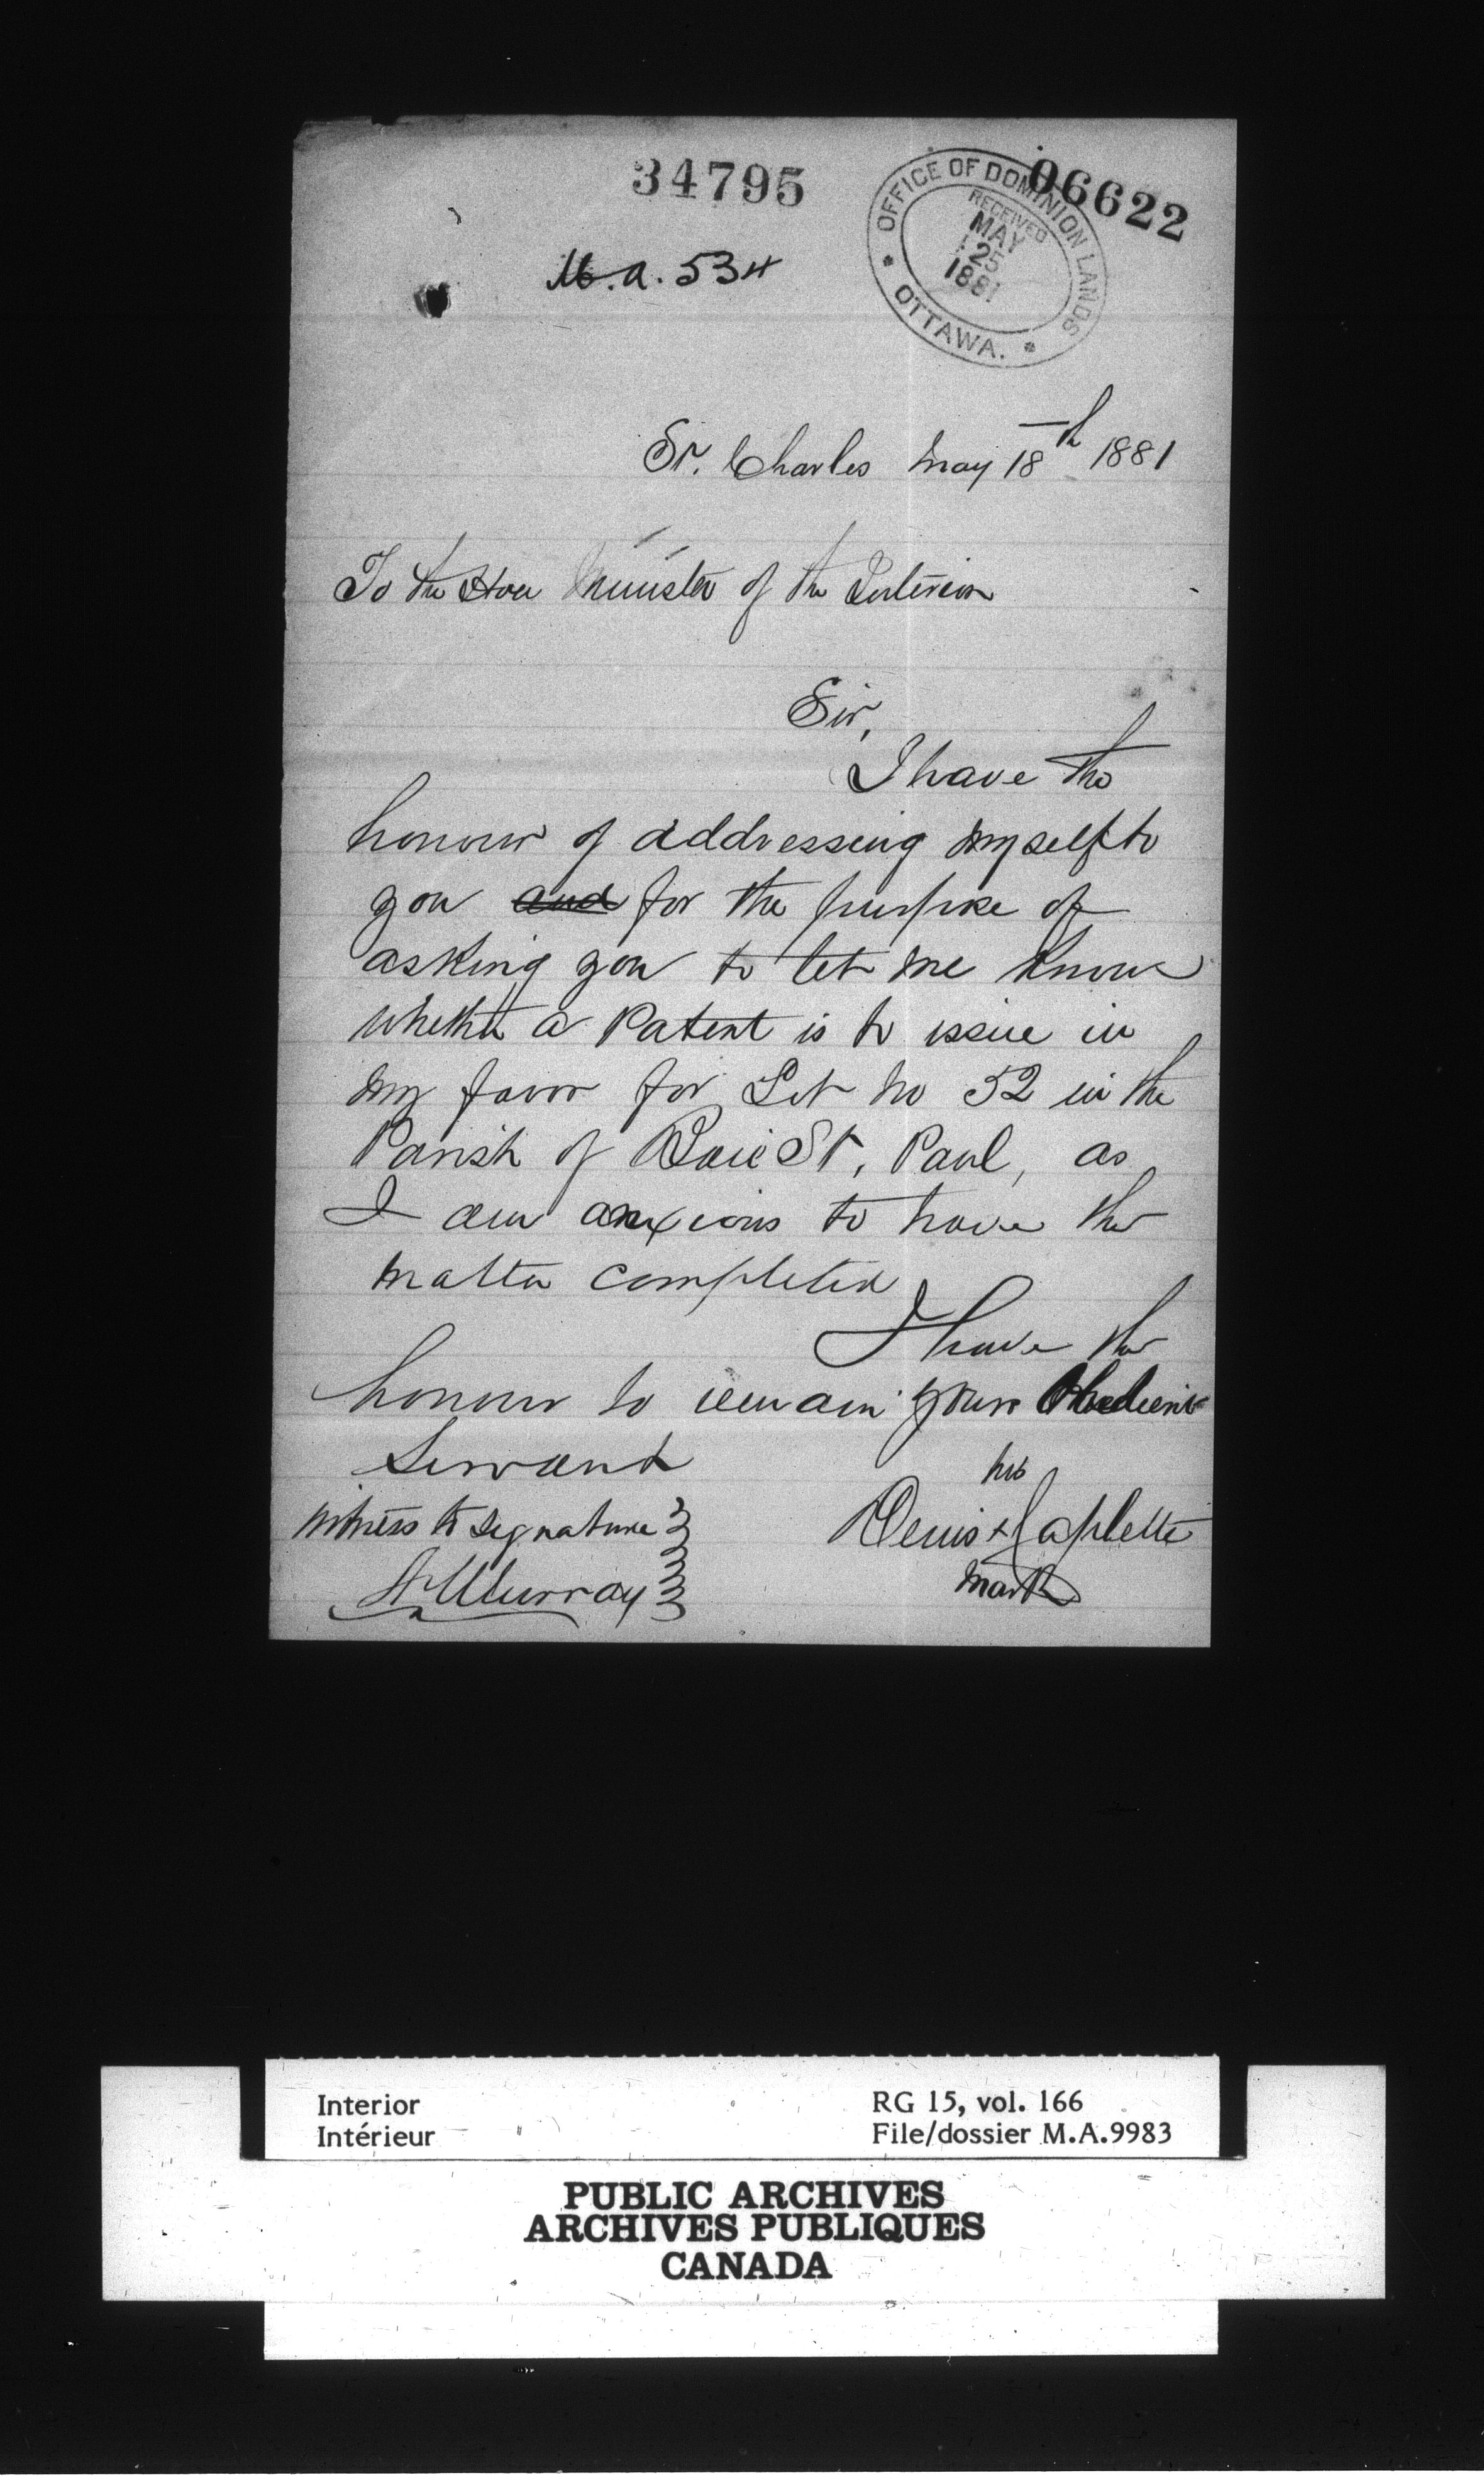 34795
06622
OFFICE OF DOMINION LANDS
RECEIVED
MAY
25
1881
OTTAWA.
M.A. 534
St. Charles May 18th 1881
To the Hon Minister of the Interior
Sir,
I have the
honour of addressing myself to
you and for the purpose of
asking you to let me know
whether a Patent is to issue in
my favor for Lot No 52 in the
Parish of Baie St. Paul, as
I am anxious to have the
matter completed
I have the
honour to remain your Obedient
Servant
his
Witness to signature
Denis x Caplette
mark
A Murray
Interior
Intérieur
RG 15, vol. 166
File/dossier M.A.9983
PUBLIC ARCHIVES
ARCHIVES PUBLIQUES
CANADA